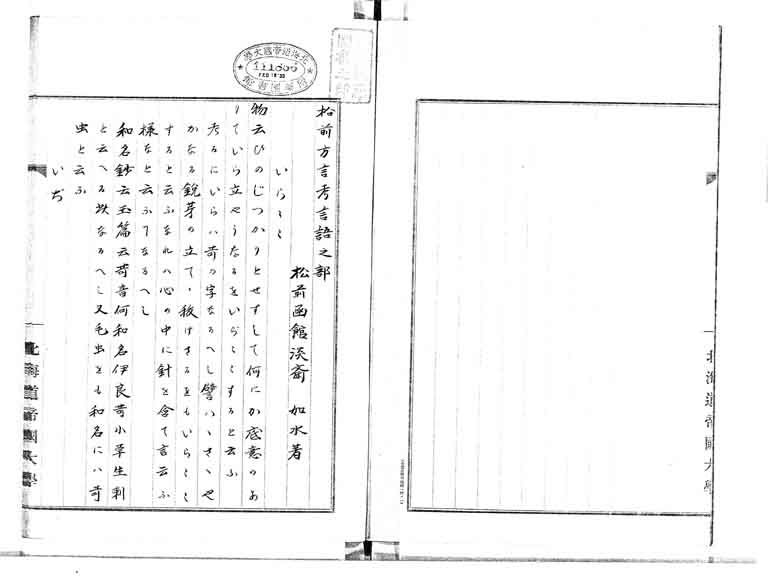 北海道帝國大學
北海道帝國大學
111806
圖書館
松前方言考言語之部
松前函館淡斎 如水著
いらくく
物云ひのじつかりとせずして何にか底意のあ
りていら立やうなるをいらくくすると云ふ
考るにいらハ苛の字なるへし譬ハヽさヽや
かなる鋭芽の立て、秡けさるをもいらくく
すると云ふなれハ心の中に針を含て言云ふ
様なと云ふてなるへし
和名鈔云玉篇云苛音何和名伊良苛小草生刺
と云へる此なるへし又毛虫をも和名にハ苛
虫と云ふ
いぢ
北海道帝國大學